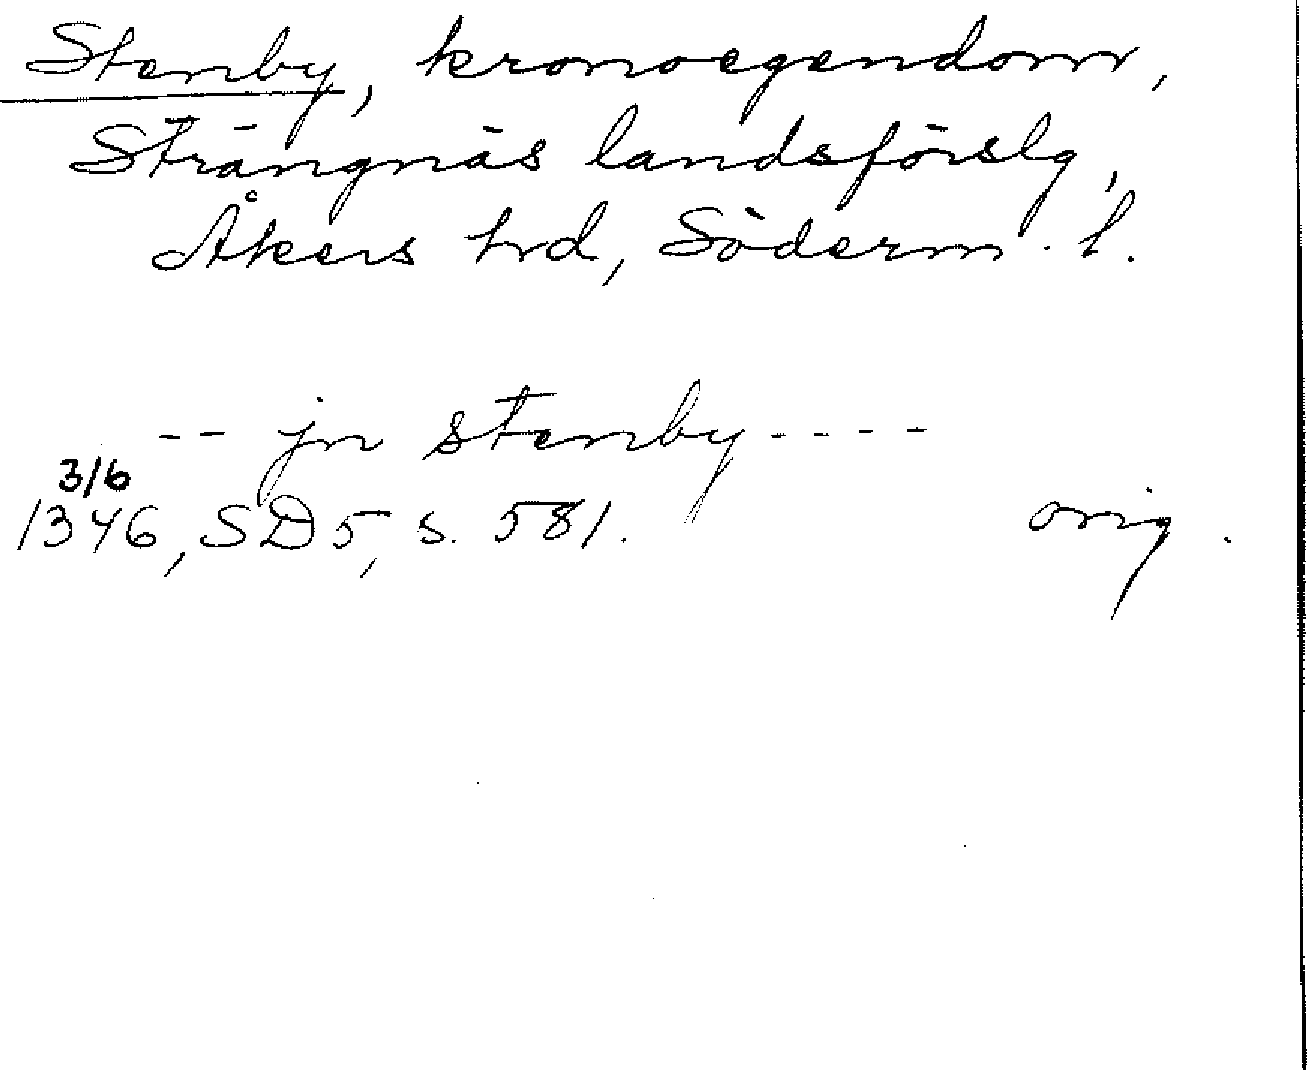 Stenby, kronoegendom,
Strängnäs landsförslg,
Åkers hd, Söderm. l.
-- jn stenby ----
3/6
1346, SD 5, s. 581. orig.